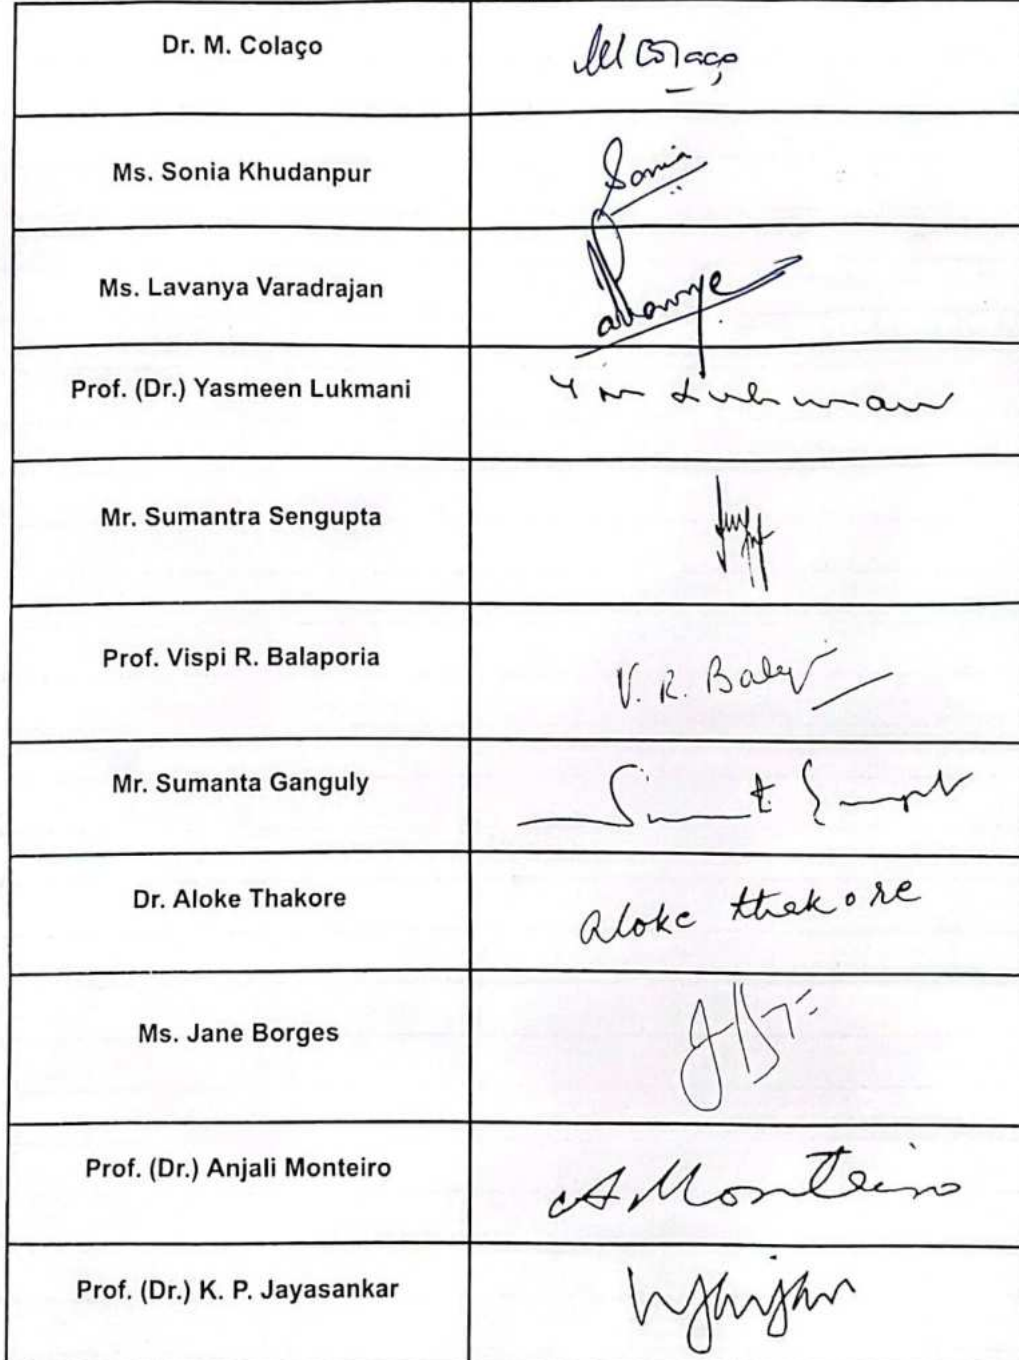 Dr. M. Colaço
M Colaço
Ms. Sonia Khudanpur
Sonia
Ms. Lavanya Varadrajan
Prof. (Dr.) Yasmeen Lukmani
Mr. Sumantra Sengupta
Prof. Vispi R. Balaporia
V. R.
Mr. Sumanta Ganguly
Dr. Aloke Thakore
aloke thakore
Ms. Jane Borges
Prof. (Dr.) Anjali Monteiro
A Monteiro
Prof. (Dr.) K. P. Jayasankar